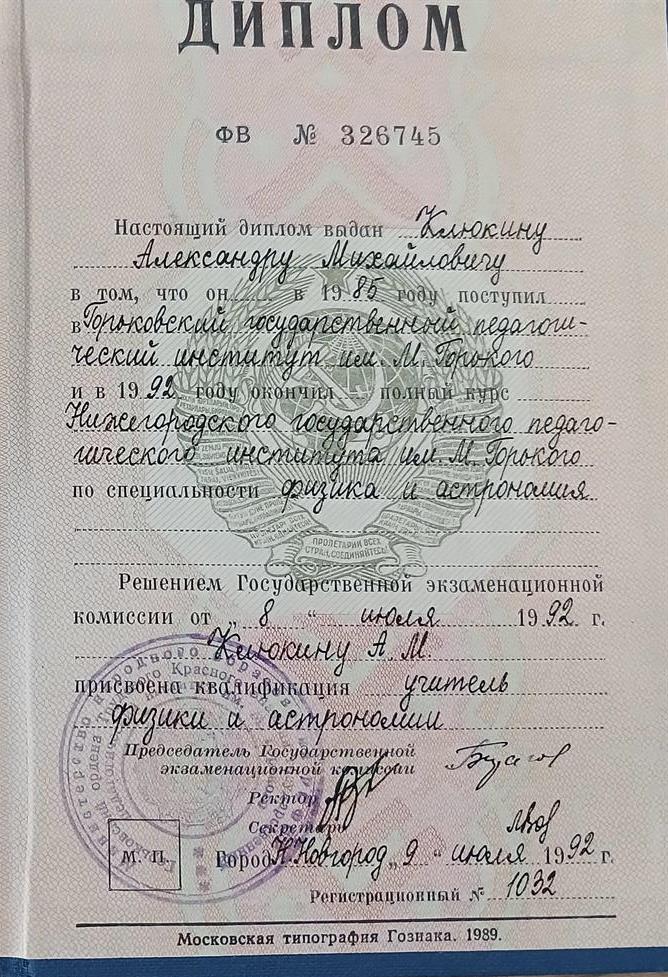 ДИПЛОМ
ФВ № 326745
Настоящий диплом выдан Клюкину
Александру Михайловичу
в том, что он в 1985 году поступил
в Горьковский государственный педагоги-
ческий институт им. М. Горького
и в 1992 году окончил полный курс
Нижегородского государственного педаго-
гического института им. М. Горького
по специальности физика и астрономия
ПРОЛЕТАРИИ ВСЕХ
СТРАН, СОЕДИНЯЙТЕСЬ!
Решением Государственной экзаменационной
комиссии от „8“ июля 1992 г.
Клюкину А. М.
присвоена квалификация учитель
физики и астрономии
Председатель Государственной
экзаменационной комиссии
Ректор
Секретарь
М. П.
Город Н. Новгород „9“ июля 1992 г.
Регистрационный № 1032
Московская типография Гознака. 1989.